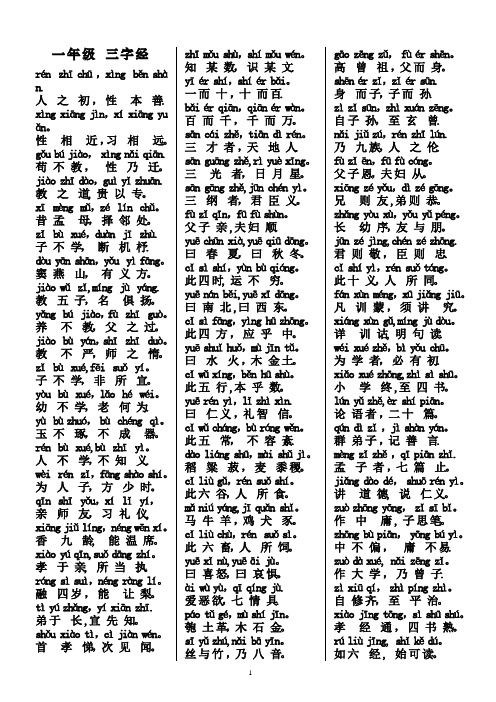 一年级 三字经
rén zhī chū，xìng běn shà
n.
人 之 初，性 本 善.
xìng xiāng jìn，xí xiāng yu
ǎn。
性 相 近，习 相 远。
gǒu bú jiào，xìng nǎi qiān.
苟 不 教， 性 乃 迁。
jiào zhī dào，guì yǐ zhuān.
教 之 道，贵 以 专。
xī mèng mǔ，zé lín chǔ。
昔 孟 母，择 邻 处。
zǐ bù xué，duàn jī zhù.
子 不 学， 断 机 杼.
dòu yān shān，yǒu yì fāng。
窦 燕 山， 有 义 方。
jiào wǔ zǐ，míng jù yáng.
教 五 子， 名 俱 扬。
yǎng bú jiào，fù zhī guò。
养 不 教，父 之 过。
jiào bù yán，shī zhī duò。
教 不 严，师 之 惰。
zǐ bù xué，fēi suǒ yí。
子 不 学，非 所 宜。
yòu bù xué，lǎo hé wéi。
幼 不 学，老 何 为
yù bù zhuó，bù chéng qì。
玉 不 琢，不 成 器。
rén bù xué，bù zhī yì。
人 不 学，不 知 义
wèi rén zǐ，fāng shào shí。
为 人 子，方 少 时。
qīn shī yǒu，xí lǐ yí，
亲 师 友，习 礼 仪，
xiāng jiǔ líng，néng wēn xí。
香 九 龄，能 温 席。
xiào yú qīn，suǒ dāng zhí。
孝 于 亲，所 当 执
róng sì suì，néng ràng lí。
融 四 岁，能 让 梨。
tì yú zhǎng，yí xiān zhī.
弟于 长，宜 先 知。
shǒu xiào tì，cì jiàn wén。
首 孝 悌，次 见 闻。
zhī mǒu shù，shí mǒu wén。
知 某 数，识 某 文
yī ér shí，shí ér bǎi。
一而 十，十 而 百
bǎi ér qiān，qiān ér wàn。
百 而 千，千 而 万。
sān cái zhě，tiān dì rén。
三 才 者，天 地 人
sān guāng zhě，rì yuè xīng。
三 光 者， 日 月 星。
sān gāng zhě，jūn chén yì。
三 纲 者， 君 臣 义。
fù zǐ qīn，fū fù shùn。
父子 亲，夫妇 顺
yuē chūn xià，yuē qiū dōng。
曰 春 夏， 曰 秋 冬。
cǐ sì shí，yùn bù qióng。
此四时，运 不 穷。
yuē nán běi，yuē xī dōng。
曰 南北，曰 西东。
cǐ sì fāng，yìng hū zhōng。
此四方， 应 乎 中。
yuē shuǐ huǒ，mù jīn tǔ。
曰 水 火，木 金土。
cǐ wǔ xíng，běn hū shù。
此五行，本 乎 数。
yuē rén yì，lǐ zhì xìn.
曰 仁义，礼 智 信。
cǐ wǔ cháng，bù róng wěn。
此五 常， 不 容 紊。
dào liáng shū，mài shǔ jì。
稻 粱 菽，麦 黍稷。
cǐ liù gǔ，rén suǒ shí。
此六谷，人 所 食。
mǎ niú yáng，jī quǎn shǐ。
马 牛 羊，鸡 犬 豕。
cǐ liù chù，rén suǒ sì。
此 六 畜，人 所 饲。
yuē xǐ nù，yuē āi jù。
曰 喜 怒，曰 哀惧。
ài wù yù，qī qíng jù.
爱恶欲，七 情 具
páo tǔ gé，mù shí jīn。
匏 土革，木 石 金。
sī yǔ zhú，nǎi bā yīn。
丝与竹，乃 八 音。
gāo zēng zǔ，fù ér shēn。
高 曾 祖，父 而 身。
shēn ér zǐ，zǐ ér sūn.
身 而子，子而 孙
zì zǐ sūn，zhì xuán zēng。
自子 孙，至 玄 曾.
nǎi jiǔ zú，rén zhī lún.
乃 九族，人 之 伦
fù zǐ ēn，fū fù cóng。
父子恩，夫妇 从。
xiōng zé yǒu，dì zé gōng。
兄 则 友，弟则 恭。
zhǎng yòu xù，yǒu yǔ péng。
长 幼 序，友 与 朋。
jūn zé jìng，chén zé zhōng.
君 则 敬，臣 则 忠
cǐ shí yì，rén suǒ tóng。
此十 义，人 所 同。
fán xùn méng，xū jiǎng jiū。
凡 训 蒙，须 讲 究。
xiáng xùn gǔ，míng jù dòu。
详 训 诂，明 句 读
wéi xué zhě，bì yǒu chū。
为 学 者，必 有 初。
xiǎo xué zhōng，zhì sì shū。
小 学 终，至 四 书。
lún yǔ zhě，èr shí piān。
论 语者，二十 篇。
qún dì zǐ ，jì shàn yán。
群 弟子，记 善 言.
mèng zǐ zhě ，qī piān zhǐ.
孟 子 者，七 篇 止。
jiǎng dào dé， shuō rén yì。
讲 道 德， 说 仁义。
zuò zhōng yōng， zǐ sī bǐ。
作 中 庸，子思笔。
zhōng bù piān， yōng bú yì。
中 不 偏， 庸 不易.
zuò dà xué， nǎi zēng zǐ。
作 大 学，乃 曾 子.
zì xiū qí， zhì píng zhì。
自 修齐， 至 平治。
xiào jīng tōng，sì shū shú。
孝 经 通，四 书 熟。
rú liù jīng，shǐ kě dú。
如六 经，始 可读。
1